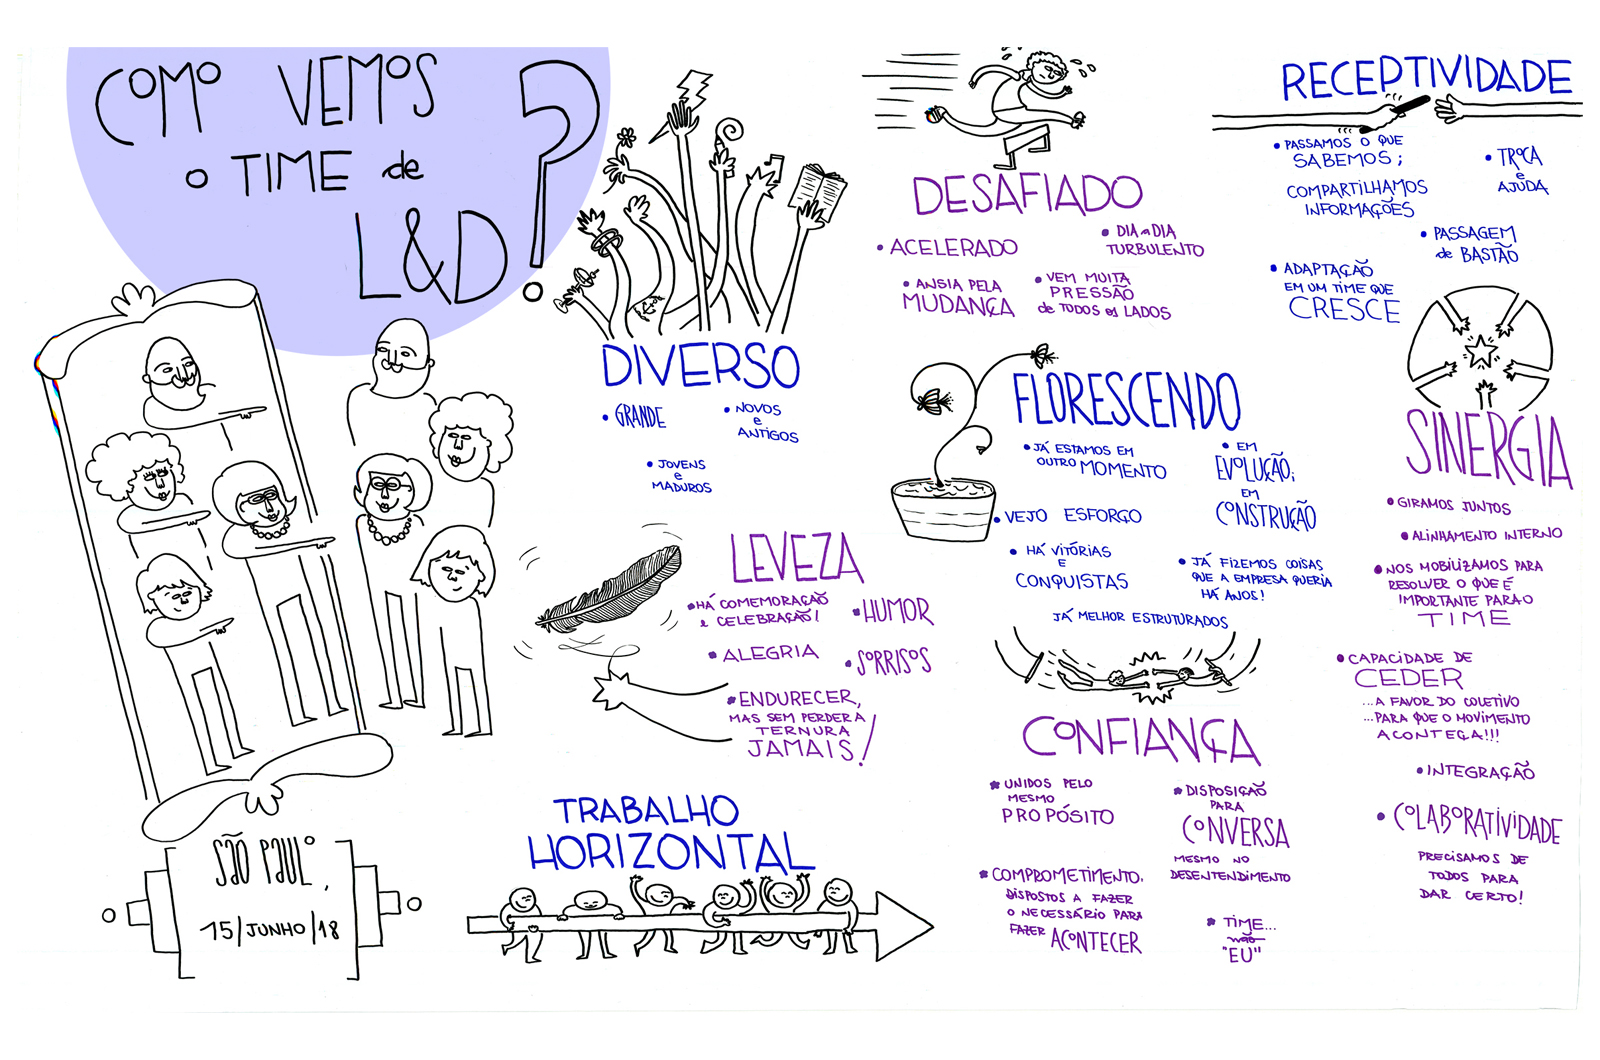 COMO VEMOS
O TIME de
L&D?
SÃO PAULO,
15/JUNHO/18
DIVERSO
• GRANDE
• NOVOS
e
ANTIGOS
• JOVENS
e
MADUROS
LEVEZA
• HÁ COMEMORAÇÃO
e CELEBRAÇÃO!
• HUMOR
• ALEGRIA
• SORRISOS
• ENDURECER,
MAS SEM PERDER A
TERNURA
JAMAIS!
TRABALHO
HORIZONTAL
DESAFIADO
• ACELERADO
• DIA a DIA
TURBULENTO
• ANSIA PELA
MUDANÇA
• VEM MUITA
PRESSÃO
de TODOS os LADOS
FLORESCENDO
• JÁ ESTAMOS EM
OUTRO MOMENTO
• EM
EVOLUÇÃO;
EM
CONSTRUÇÃO
• VEJO ESFORÇO
• HÁ VITÓRIAS
E
CONQUISTAS
• JÁ FIZEMOS COISAS
QUE A EMPRESA QUERIA
HÁ ANOS!
JÁ MELHOR ESTRUTURADOS
CONFIANÇA
• UNIDOS PELO
MESMO
PROPÓSITO
• DISPOSIÇÃO
PARA
CONVERSA
MESMO NO
DESENTENDIMENTO
• COMPROMETIMENTO.
DISPOSTOS A FAZER
O NECESSÁRIO PARA
FAZER ACONTECER
• TIME...
não
"EU"
RECEPTIVIDADE
• PASSAMOS O QUE
SABEMOS;
COMPARTILHAMOS
INFORMAÇÕES
• TROCA
e
AJUDA
• PASSAGEM
de BASTÃO
• ADAPTAÇÃO
EM UM TIME QUE
CRESCE
SINERGIA
• GIRAMOS JUNTOS
• ALINHAMENTO INTERNO
• NOS MOBILIZAMOS PARA
RESOLVER O QUE É
IMPORTANTE PARA O
TIME
• CAPACIDADE DE
CEDER
...A FAVOR DO COLETIVO
...PARA QUE O MOVIMENTO
ACONTEÇA!!!
• INTEGRAÇÃO
• COLABORATIVIDADE
PRECISAMOS DE
TODOS PARA
DAR CERTO!